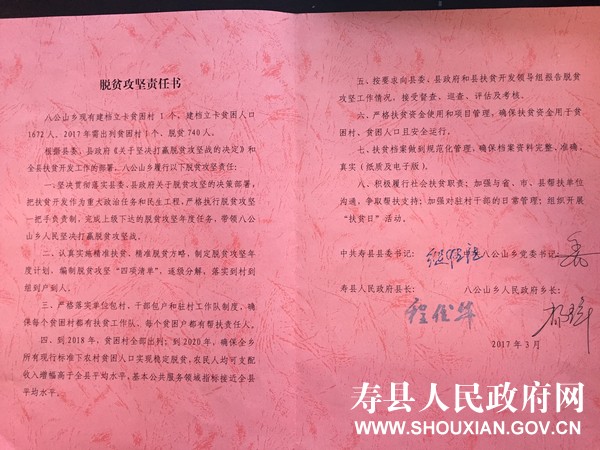 脱贫攻坚责任书
八公山乡现有建档立卡贫困村 1 个,建档立卡贫困人口
1672 人。2017 年需出列贫困村 1 个、脱贫 740 人。
根据县委、县政府《关于坚决打赢脱贫攻坚战的决定》和
全县扶贫开发工作的部署,八公山乡履行以下脱贫攻坚责任:
一、坚决贯彻落实县委、县政府关于脱贫攻坚的决策部署,
把扶贫开发作为重大政治任务和民生工程,严格执行脱贫攻坚
一把手负责制,完成上级下达的脱贫攻坚年度任务,带领八公
山乡人民坚决打赢脱贫攻坚战。
二、认真实施精准扶贫、精准脱贫方略,制定脱贫攻坚年
度计划,编制脱贫攻坚“四项清单”,逐级分解,落实到村到
组到户到人。
三、严格落实单位包村、干部包户和驻村工作队制度,确
保每个贫困村都有扶贫工作队、每个贫困户都有帮扶责任人。
四、到 2018 年,贫困村全部出列;到 2020 年,确保全乡
所有现行标准下农村贫困人口实现稳定脱贫,农民人均可支配
收入增幅高于全县平均水平,基本公共服务领域指标接近全县
平均水平。
五、按要求向县委、县政府和县扶贫开发领导组报告脱贫
攻坚工作情况,接受督查、巡查、评估及考核。
六、严格扶贫资金使用和项目管理,确保扶贫资金用于贫
困村、贫困人口且安全运行。
七、扶贫档案做到规范化管理,确保档案资料完整、准确、
真实(纸质及电子版)。
八、积极履行社会扶贫职责;加强与省、市、县帮扶单位
沟通,争取帮扶支持;加强对驻村干部的日常管理;组织开展
“扶贫日”活动。
中共寿县县委书记: 八公山乡党委书记:
寿县人民政府县长: 八公山乡人民政府乡长:
程俊华
2017 年 3 月
寿县人民政府网
WWW.SHOUXIAN.GOV.CN